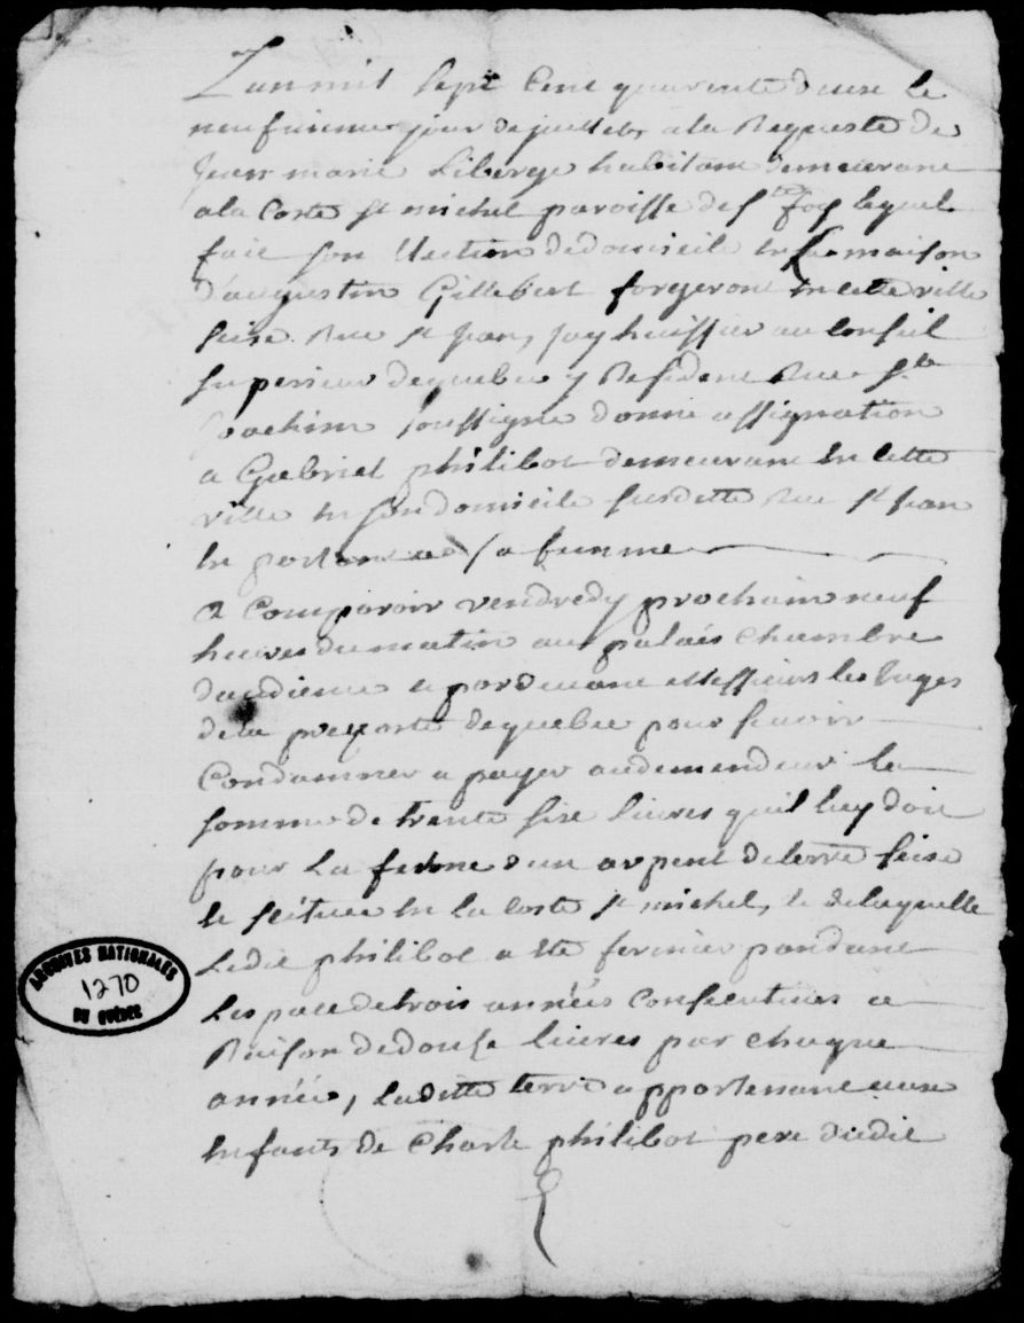 Lan mil sept Cent quarente deux le
neufuieme jour de juillet, a la Requeste de
Jean marie Liberge habitant demeurant
a la Coste st michel paroisse de ste foy lequel
fait son Election de domicile en la maison
d'augustin Gillebert forgeron en cette ville
seise Rue st jean, jay huissier au Conseil
superieur de quebec y Residant Rue st
Joachim soussigne donné assignation
a Gabriel philibot demeurant en cette
ville en son domicile susdette Rue st jean
en parlant a sa femme
a Comparoir vendredy prochain neuf
heures du matin au palais Chambre
daudience et pardevant Messieurs les Juges
de la prevosté de quebec pour se voir
Condamner a payer au demendeur la
somme de trente sixe liures quil luy doit
pour La ferme d'un arpent de terre seise
et scituee en la Coste st michel, et de laquelle
Ledit philibot a Eté fermier pandant
Lespace de trois années Consecutiues a
Raison de douse liures par Chaque
année, Ladette terre appartenant aux
Enfants de Charle philibot pere dudit
ARCHIVES NATIONALES
1270
DU QUÉBEC